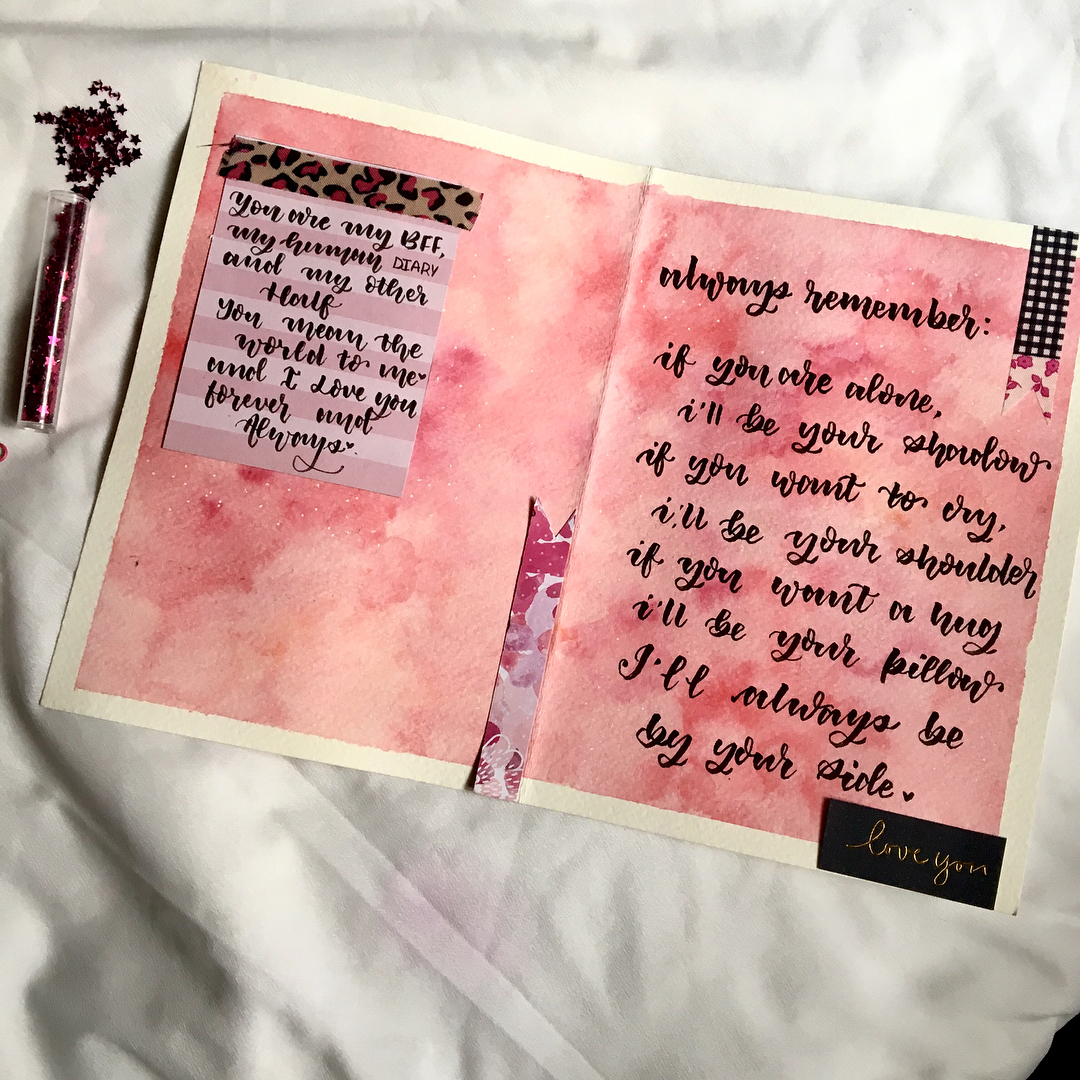 You are my BFF,
my human DIARY
and my other
Half
You mean the
world to me
and I Love you
forever and
Always.
always remember:
if you are alone,
i'll be your shadow
if you want to cry,
i'll be your shoulder
if you want a hug
i'll be your pillow
I'll always be
by your side.
love you